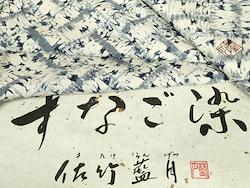 すなご染
佐竹藍月